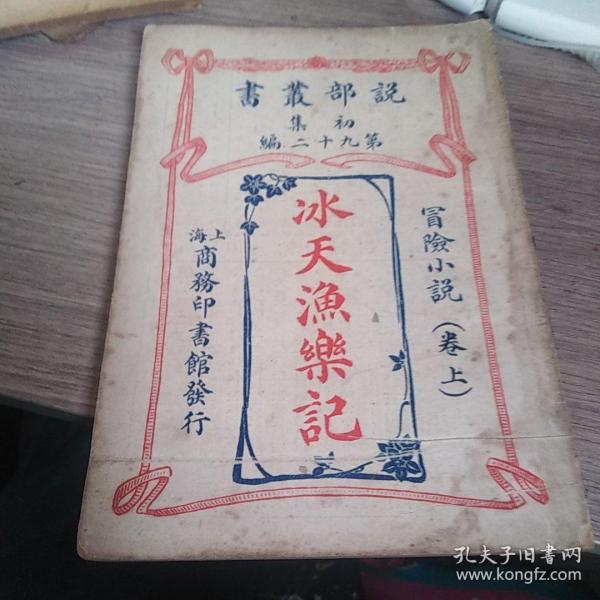 說部叢書
初集
第九十二編
冒險小說（卷上）
冰天漁樂記
上海
商務印書館發行
孔夫子旧书网
www.kongfz.com